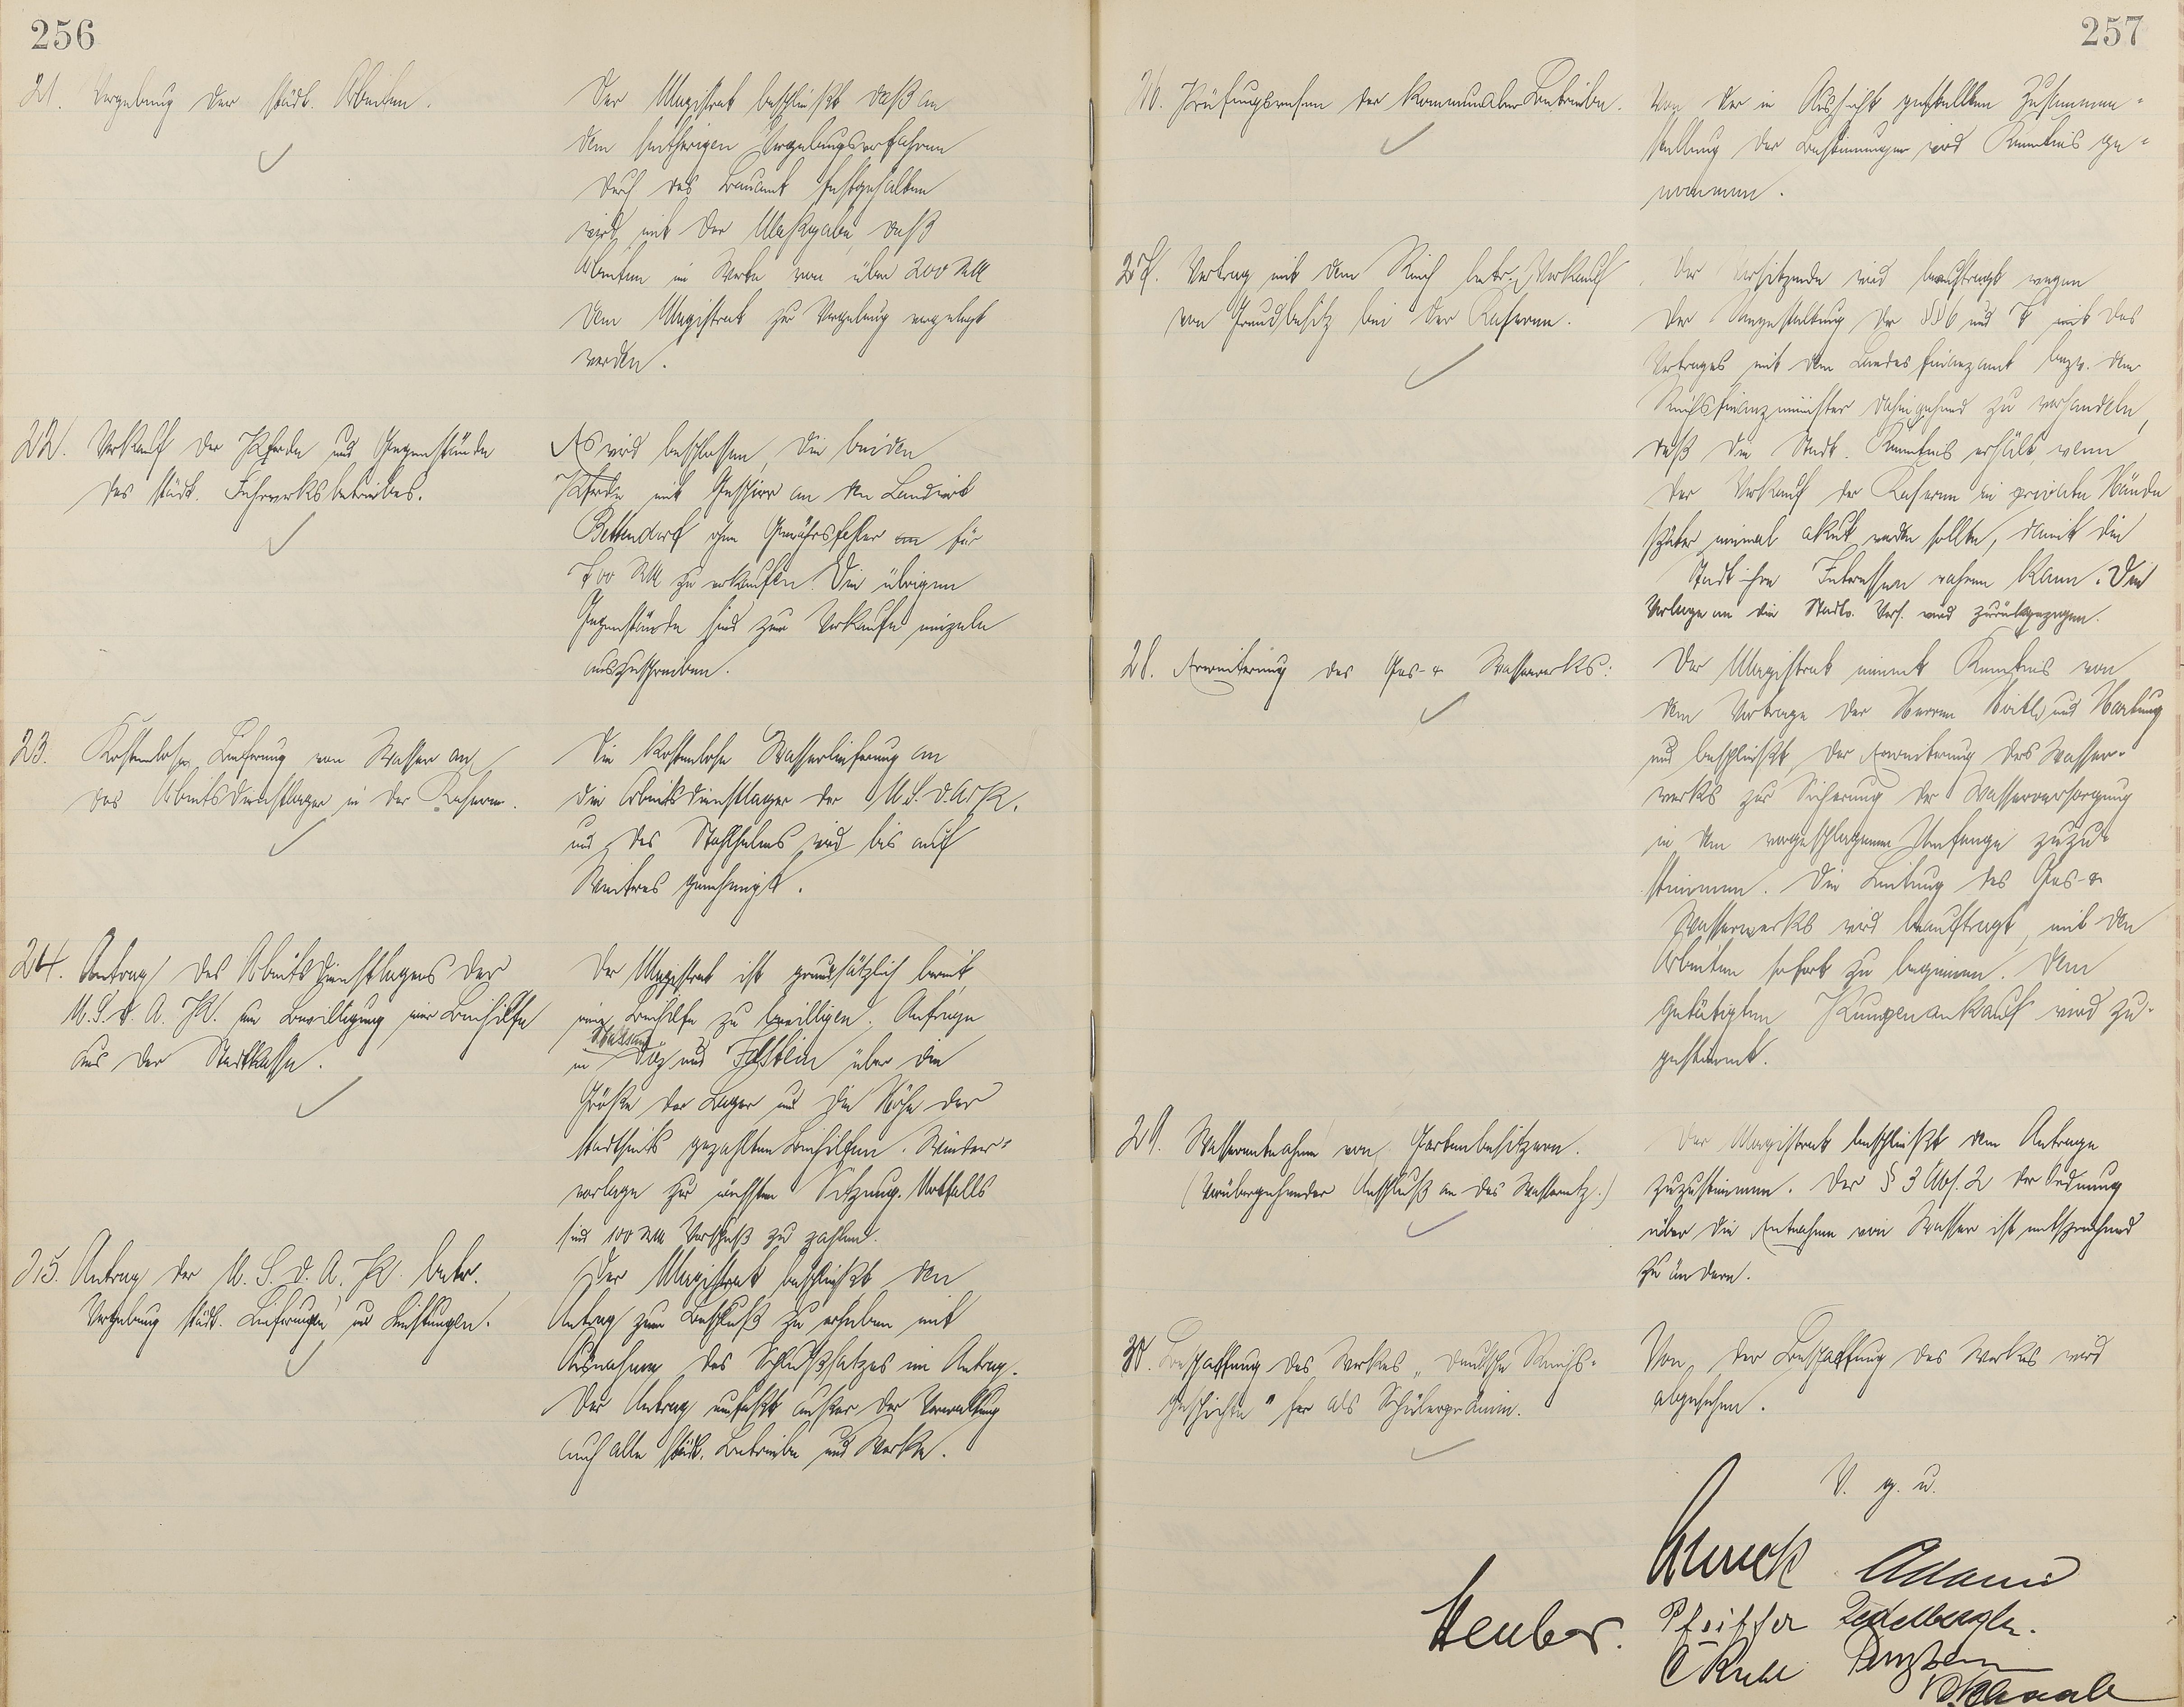 256
21. Vergebung der städt. Arbeiten.
Der Magistrat beschließt, daß an
dem seitherigen Vergebungsverfahren
durch das Bauamt festgehalten
wird, mit der Maßgabe, daß
Arbeiten im Werte von über 200 RM
dem Magistrat zur Vergebung vorgelegt
werden.
22. Verkauf der Pferde und Gegenstände
des städt. Fuhrwerksbetriebes.
Es wird beschlossen, die beiden
Pferde mit Geschirr an den Landwirt
Bettendorf ohne Gewährsfehler für
700 RM zu verkaufen. Die übrigen
Gegenstände sind zum Verkaufe einzeln
auszuschreiben.
23. Kostenlose Lieferung von Wasser an
das Arbeitsdienstlager in der Kaserne.
Die kostenlose Wasserlieferung an
die Arbeitsdienstlager der N.S.D.A.P.
und des Stahlhelms wird bis auf
Weiteres genehmigt.
24. Antrag des Arbeitsdienstlagers der
N.S.D.A.P. um Bewilligung einer Beihilfe
aus der Stadtkasse.
Der Magistrat ist grundsätzlich bereit,
eine Beihilfe zu bewilligen. Anfrage
in Diez und über die
Größe der Lager und die Höhe der
stadtseits gezahlten Beihilfen. Wieder-
vorlage zur nächsten Sitzung. Notfalls
sind 100 RM Vorschuß zu zahlen.
25. Antrag der N.S.D.A.P. betr.
Vergebung städt. Lieferungen und Leistungen.
Der Magistrat beschließt, den
Antrag zum Beschluß zu erheben mit
Ausnahme des Schlußsatzes im Antrag.
Der Antrag umfaßt außer der Verwaltung
auch alle städt. Betriebe und Werke.
257
26. Prüfungswesen der kommunalen Betriebe.
Von der in Aussicht gestellten Zusammen-
stellung der Bestimmungen wird Kenntnis ge-
nommen.
27. Vertrag mit dem Reich betr. Verkauf
von Grundbesitz bei der Kaserne.
Der Vorsitzende wird beauftragt wegen
der Umgestaltung der §§ 6 und 7 des
Vertrages mit dem Landesfinanzamt bezw. dem
Reichsfinanzminister dahingehend zu verhandeln,
daß die Stadt Kenntnis erhält, wenn
der Verkauf der Kaserne in private Hände
später einmal akut werden sollte, damit die
Stadt ihre Interessen wahren kann. Die
Vorlage an die Stadtv. Vers. wird zurückgezogen.
28. Erweiterung des Gas- & Wasserwerks:
Der Magistrat nimmt Kenntnis von
dem Vortrage der Herren und Hartung
und beschließt, der Erweiterung des Wasser-
werks zur Sicherung der Wasserversorgung
in dem vorgeschlagenen Umfange zuzu-
stimmen. Die Leitung des Gas- &
Wasserwerks wird beauftragt, mit den
Arbeiten sofort zu beginnen. Dem
getätigten Pumpenankauf wird zu-
gestimmt.
29. Wasserentnahme von Gartenbesitzern.
(Vorübergehender Anschluß an das Wassernetz.)
Der Magistrat beschließt dem Antrage
zuzustimmen. Der § 3 Abs. 2 der Ordnung
über die Entnahme von Wasser ist entsprechend
zu ändern.
30. Beschaffung des Werkes „Deutsche Reichs-
geschichte" hier als Schülerprämie.
Von der Beschaffung des Werkes wird
abgesehen.
V. g. u.
Adami
Heuber.
Pfeiffer